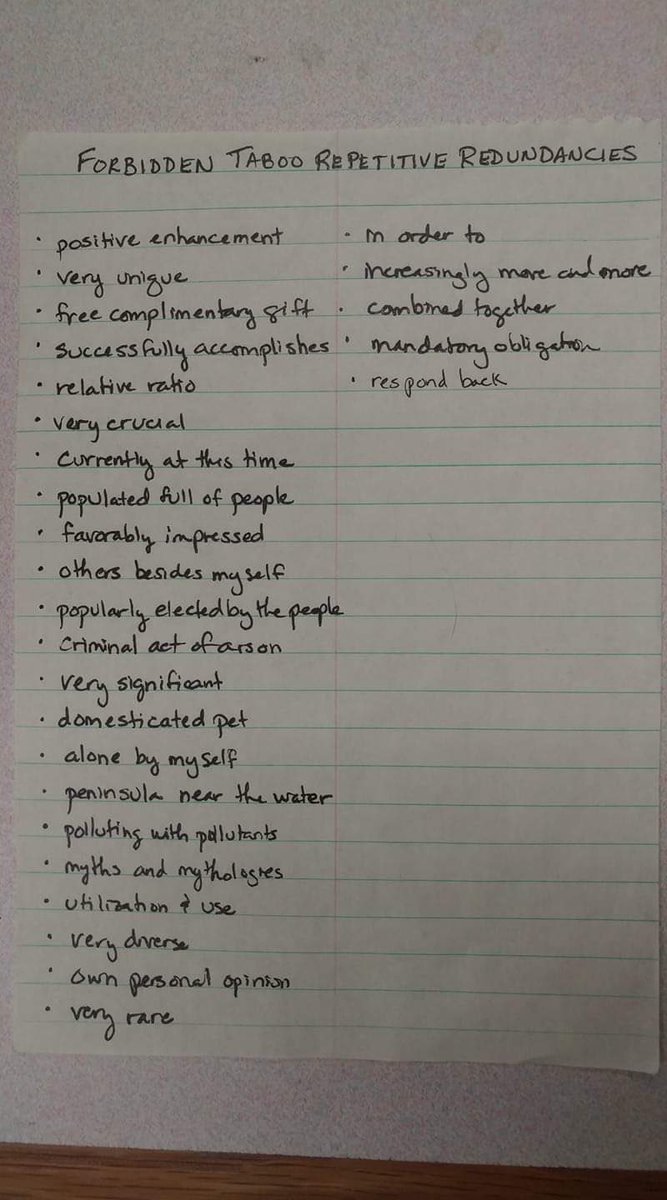 FORBIDDEN TABOO REPETITIVE REDUNDANCIES
· positive enhancement
· very unique
· free complimentary gift
· successfully accomplishes
· relative ratio
· very crucial
· currently at this time
· populated full of people
· favorably impressed
· others besides myself
· popularly elected by the people
· criminal act of arson
· very significant
· domesticated pet
· alone by myself
· peninsula near the water
· polluting with pollutants
· myths and mythologies
· utilization & use
· very diverse
· own personal opinion
· very rare
· in order to
· increasingly more and more
· combined together
· mandatory obligation
· respond back